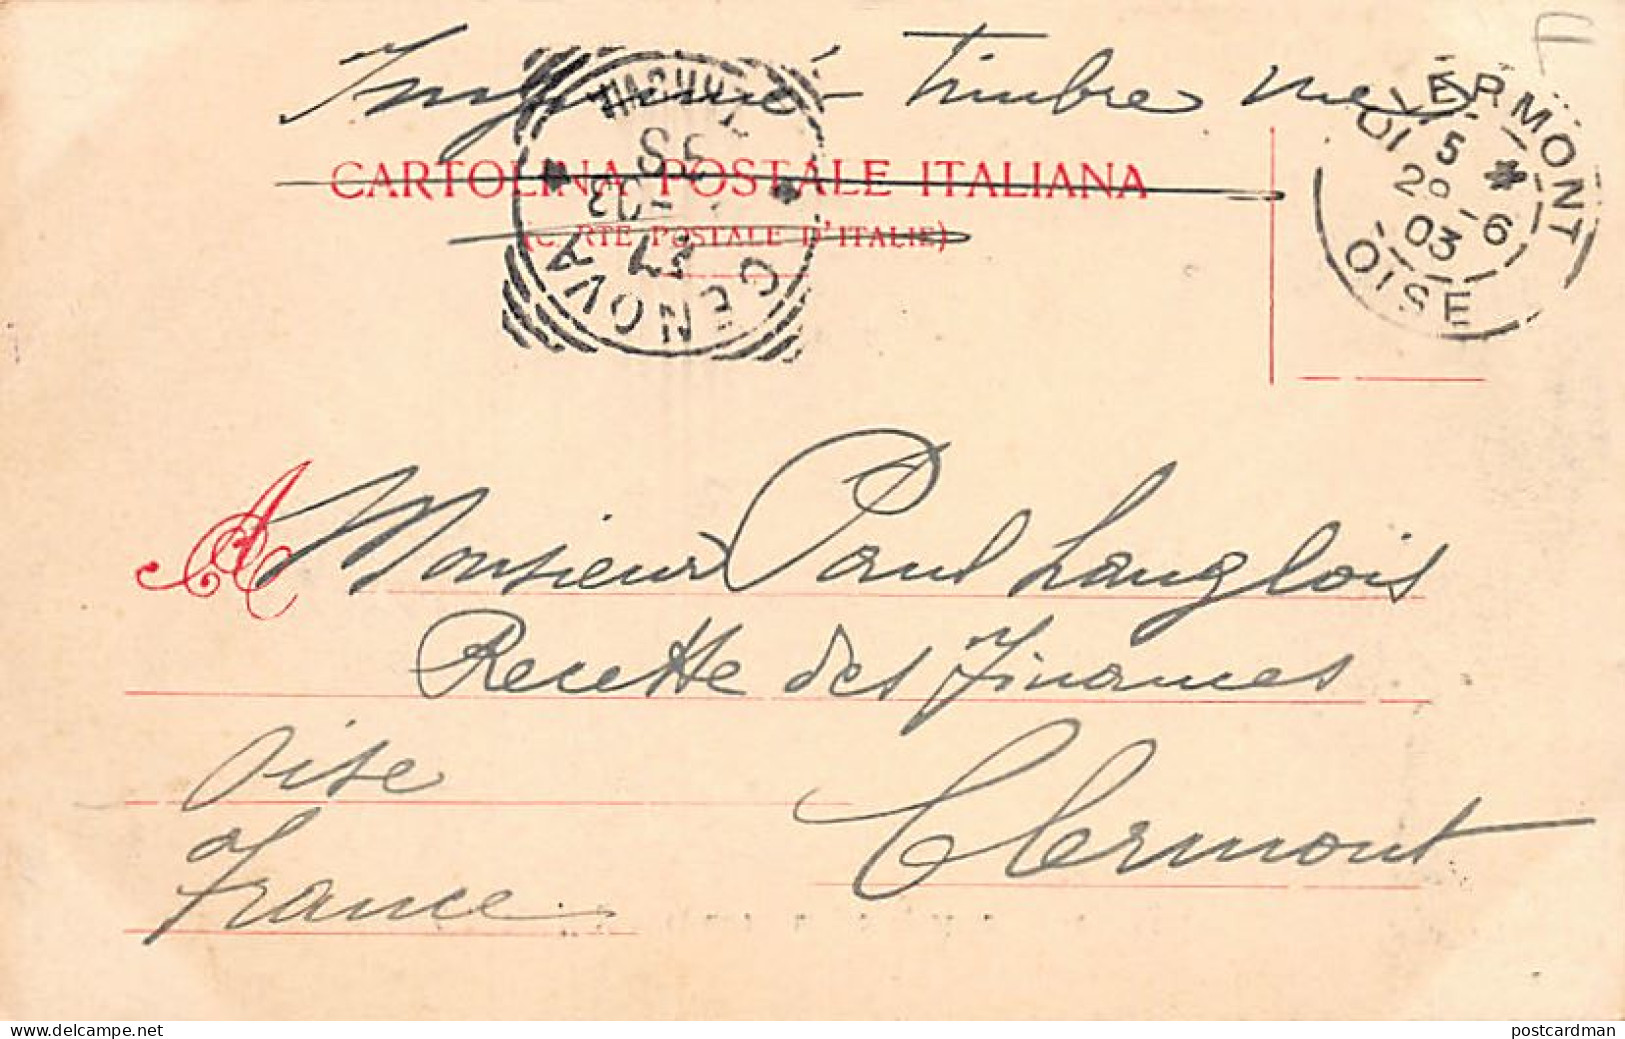 Imprimé - timbre vu
CARTOLINA POSTALE ITALIANA
(CARTE POSTALE D'ITALIE)
GENOVA
FERROVIA
CLERMONT
OISE
5
28 - 6
03
A Monsieur Paul Langlois
Recette des Finances
Oise Clermont
France
www.delcampe.net postcardman